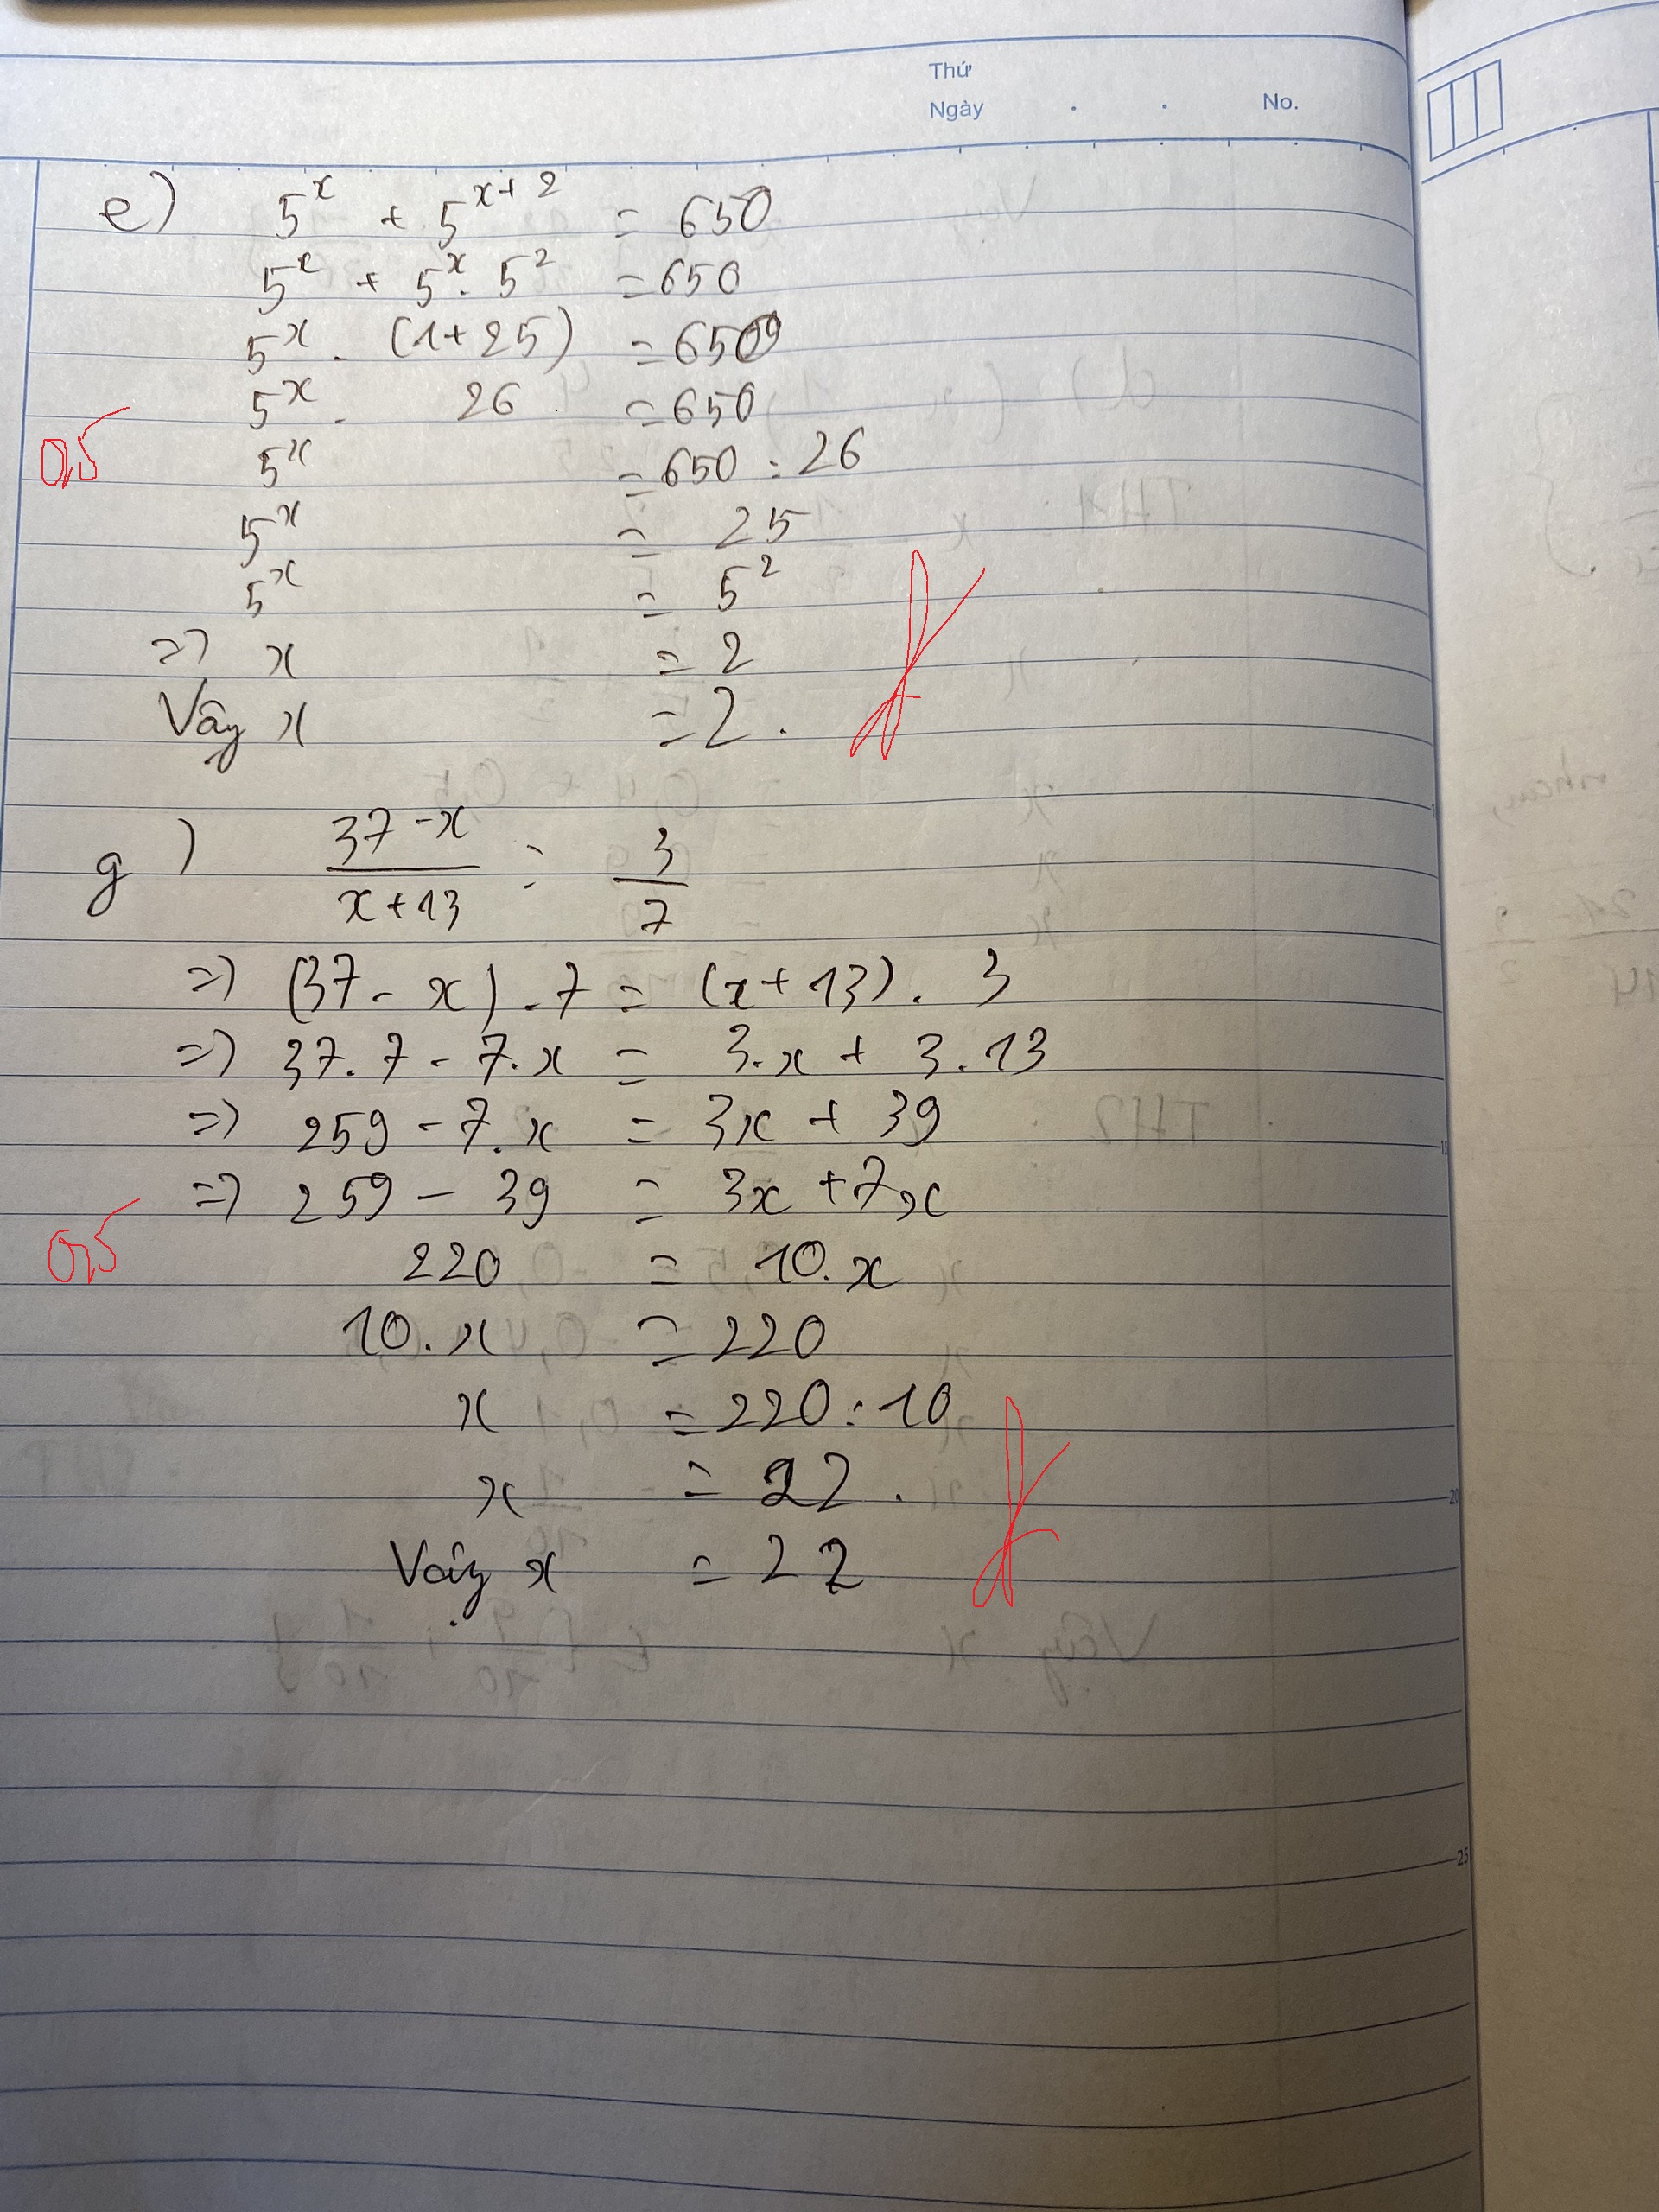 Thứ
Ngày . . No.
e) 5^x + 5^{x+2} = 650
5^x + 5^x . 5^2 = 650
5^x . (1+25) = 650
5^x . 26 = 650
0,5
5^x = 650 : 26
5^x = 25
5^x = 5^2
=> x = 2
Vây x = 2.
g) \frac{37-x}{x+13} = \frac{3}{7}
=> (37 - x) . 7 = (x+13) . 3
=> 37.7 - 7.x = 3.x + 3.13
=> 259 - 7.x = 3x + 39
=> 259 - 39 = 3x + 7x
0,5
220 = 10.x
10.x = 220
x = 220 : 10
x = 22.
Vậy x = 22
15
20
25